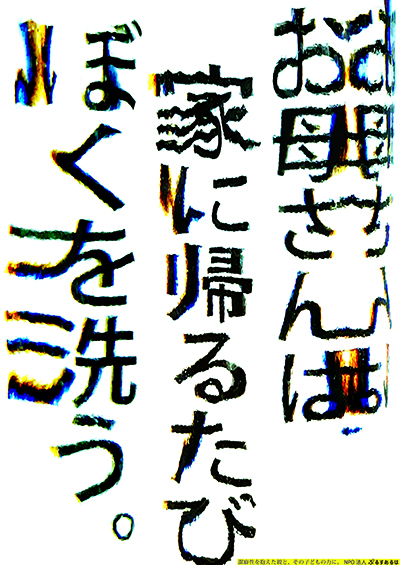 お母さんは
家に帰るたび
ぼくを洗う。
潔癖性を抱えた親と、その子どもの力に。 NPO法人 ぷるすあるは